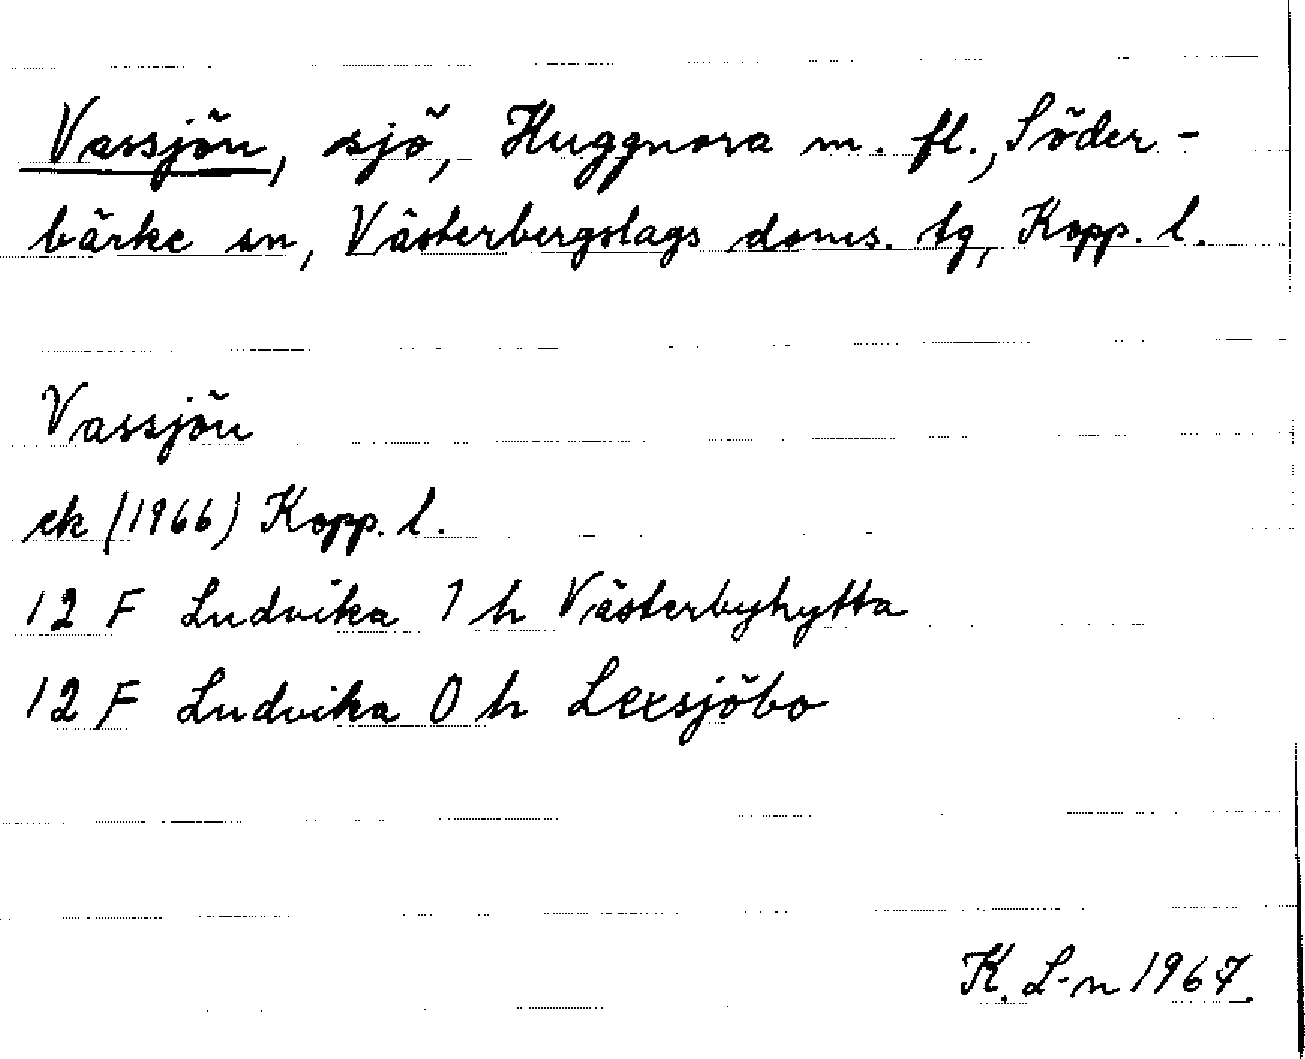 Vassjön, sjö, Huggnora m. fl., Söder-
bärke sn, Västerbergslags doms. tg, Kopp. l.
Vassjön
ek (1966) Kopp. l.
12 F Ludvika 1 h Västerbyhytta
12 F Ludvika 0 h Lexsjöbo
K. L-n 1967.